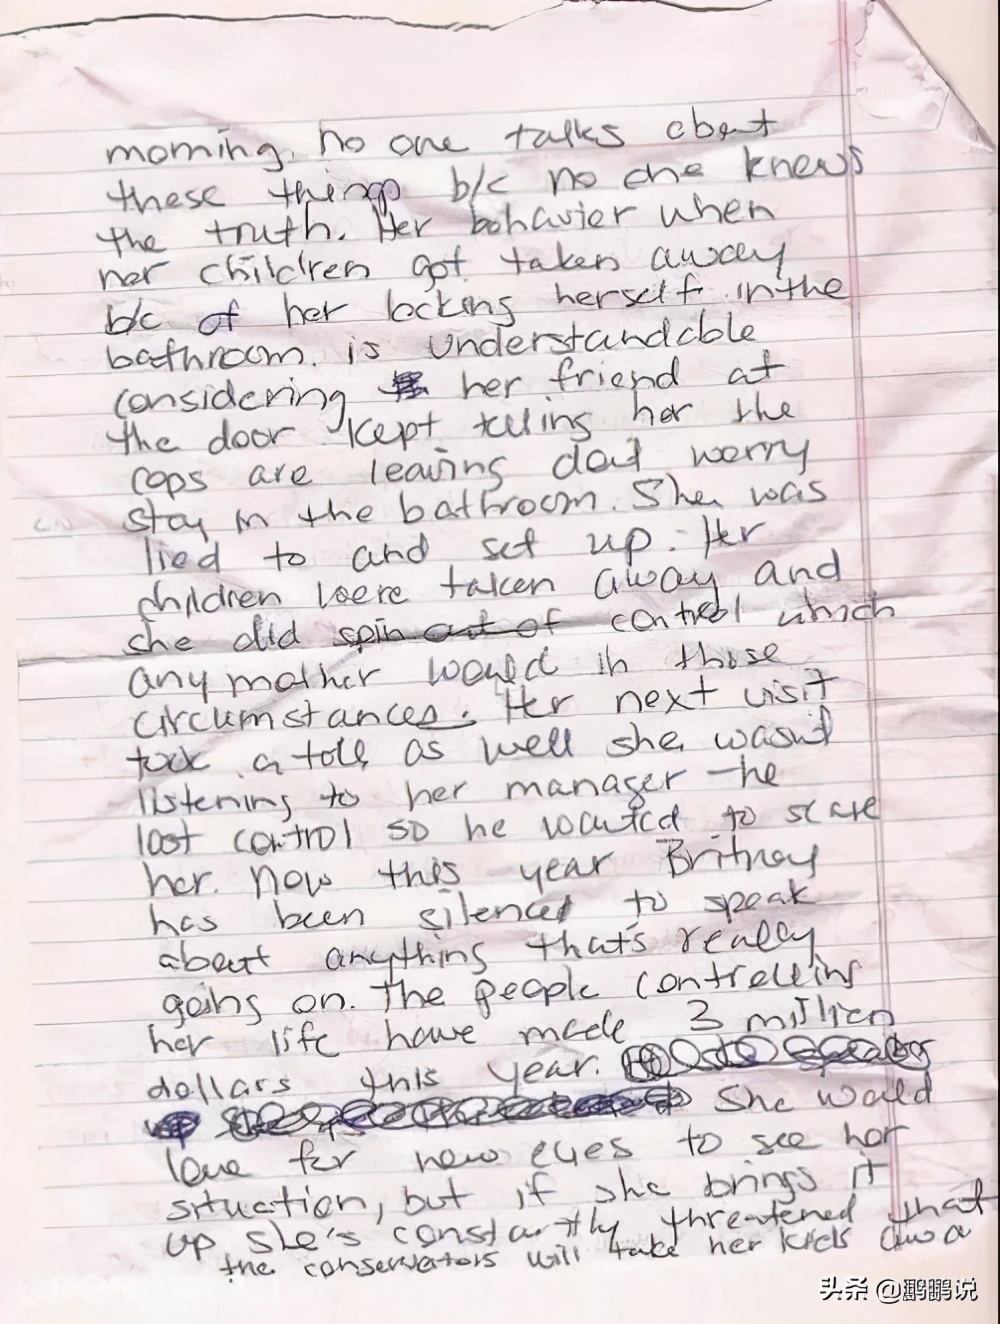 morning. no one talks about
these things b/c no one knows
the truth. Her behavior when
her children got taken away
b/c of her locking herself in the
bathroom. is understandable
considering her friend at
the door kept telling her the
cops are leaving dont worry
stay in the bathroom. She was
lied to and set up. Her
children were taken away and
she did spin out of control which
any mother would in those
circumstances. Her next visit
took a toll as well she wasn't
listening to her manager - he
lost control so he wanted to scare
her. Now this year Britney
has been silenced to speak
about anything that's really
going on. The people controlling
her life have made 3 million
dollars this year.
She would
love for new eyes to see her
situation, but if she brings it
up she's constantly threatened that
the conservators will take her kids awa
头条 @鹏鹏说